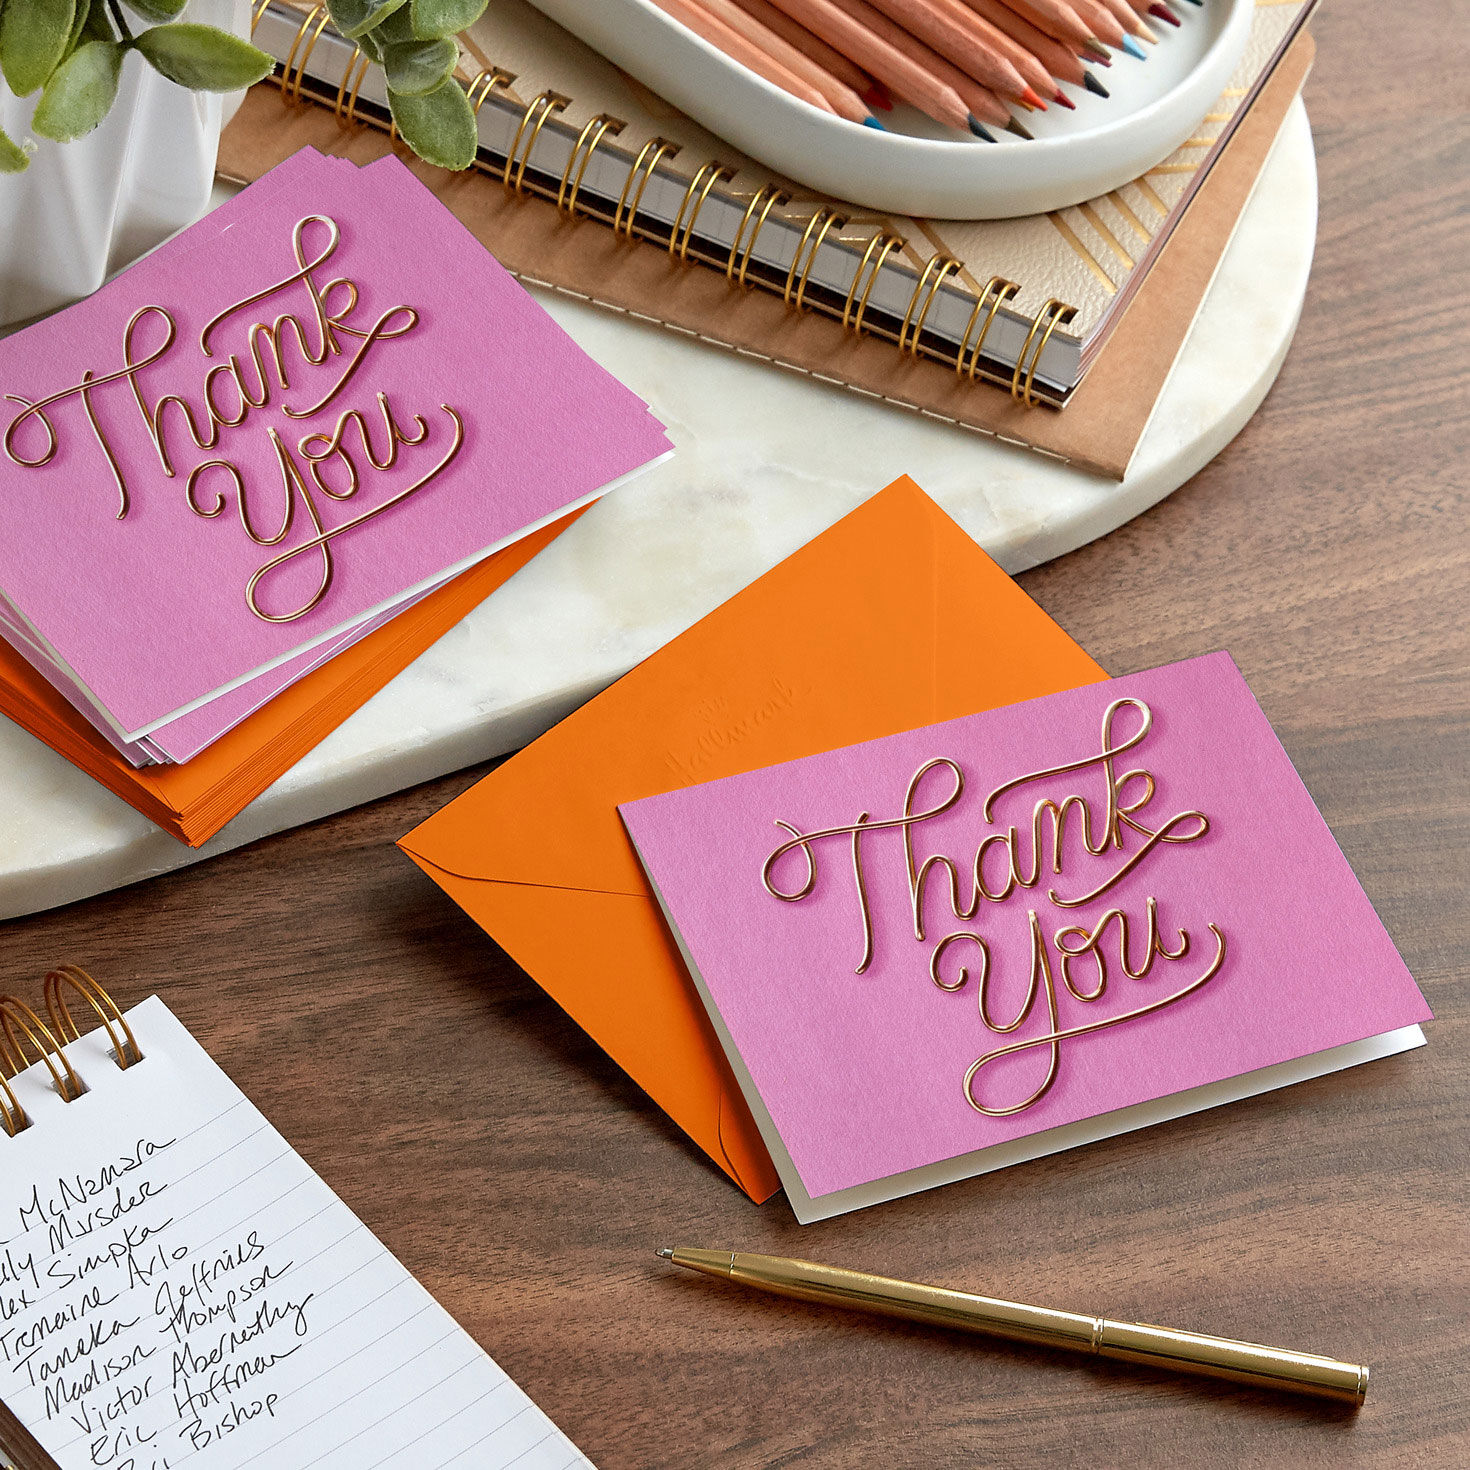 Thank
You
Thank
You
Hallmark
McNamara
Mursder
Simpka
Tremaine Arlo
Tanaka Jeffries
Madison Thompson
Victor Abernathy
Eric Hoffman
Bishop